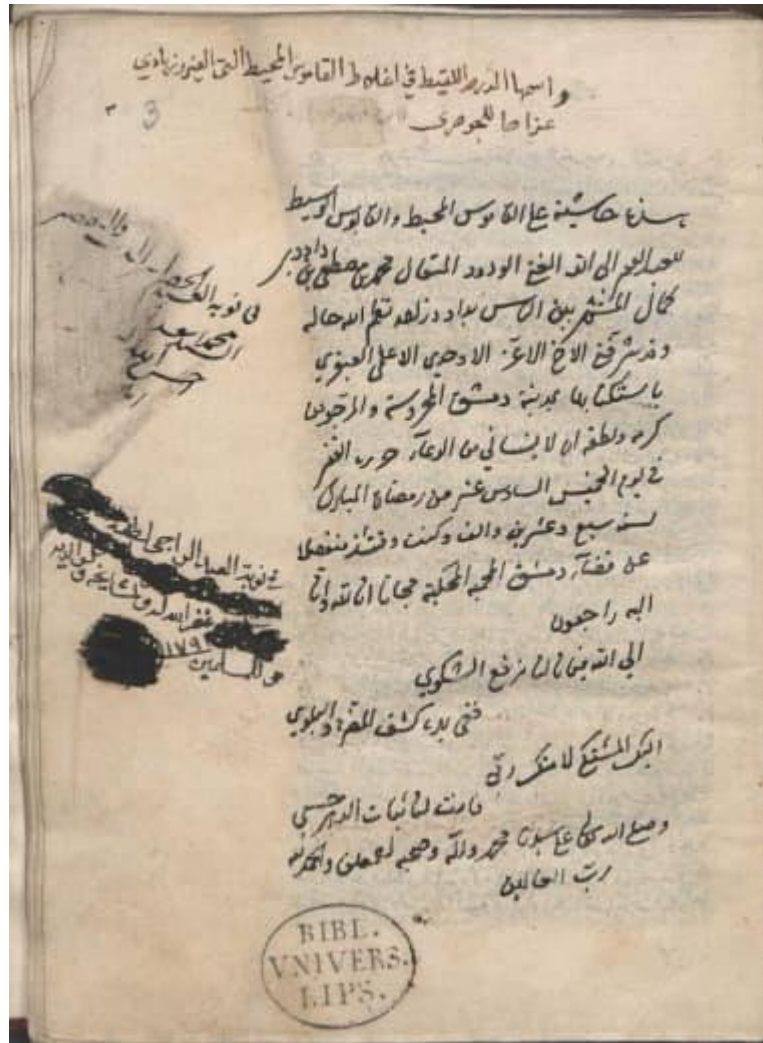 واسمها الدر اللقيط في اغلاط القاموس المحيط التي الفيروزبادي
عزاها للجوهري
3
هذه حاشية على القاموس المحيط والقابوس الوسيط
الى الله الغني الودود المتعال محمد بن مصطفى بن داود بن
كمال المشتهر بين الناس بداود زاده نظم الله حاله
وقد شرفني الاخ الاعز الاوحدي الاعلى
باستكتابها بمدينة دمشق المحروسة والمرجو من
كرمه ولطفه ان لا ينساني من الدعاء حرره الفقير
في يوم الخميس السادس عشر من رمضان المبارك
لسنة سبع وعشرين والف وكنت وقتئذ منفصلا
عن قضاء دمشق المحمية المحكية مجانا انا لله وانا
اليه راجعون
الى الله فيما نالنا نرفع الشكوى
ففي يده كشف المضرة والبلوى
اليك المشتكى لا منك ربي
فانت لنائبات الدهر حسبي
وصلى الله على سيدنا محمد واله وصحبه اجمعين والحمد لله
رب العالمين
في نوبة الفقير
محمد سعد
في نوبة العبد الراجي لطف
غفر الله له ولمشايخه ولوالديه
وللمسلمين ١١٧٩
BIBL.
VNIVERS.
LIPS.